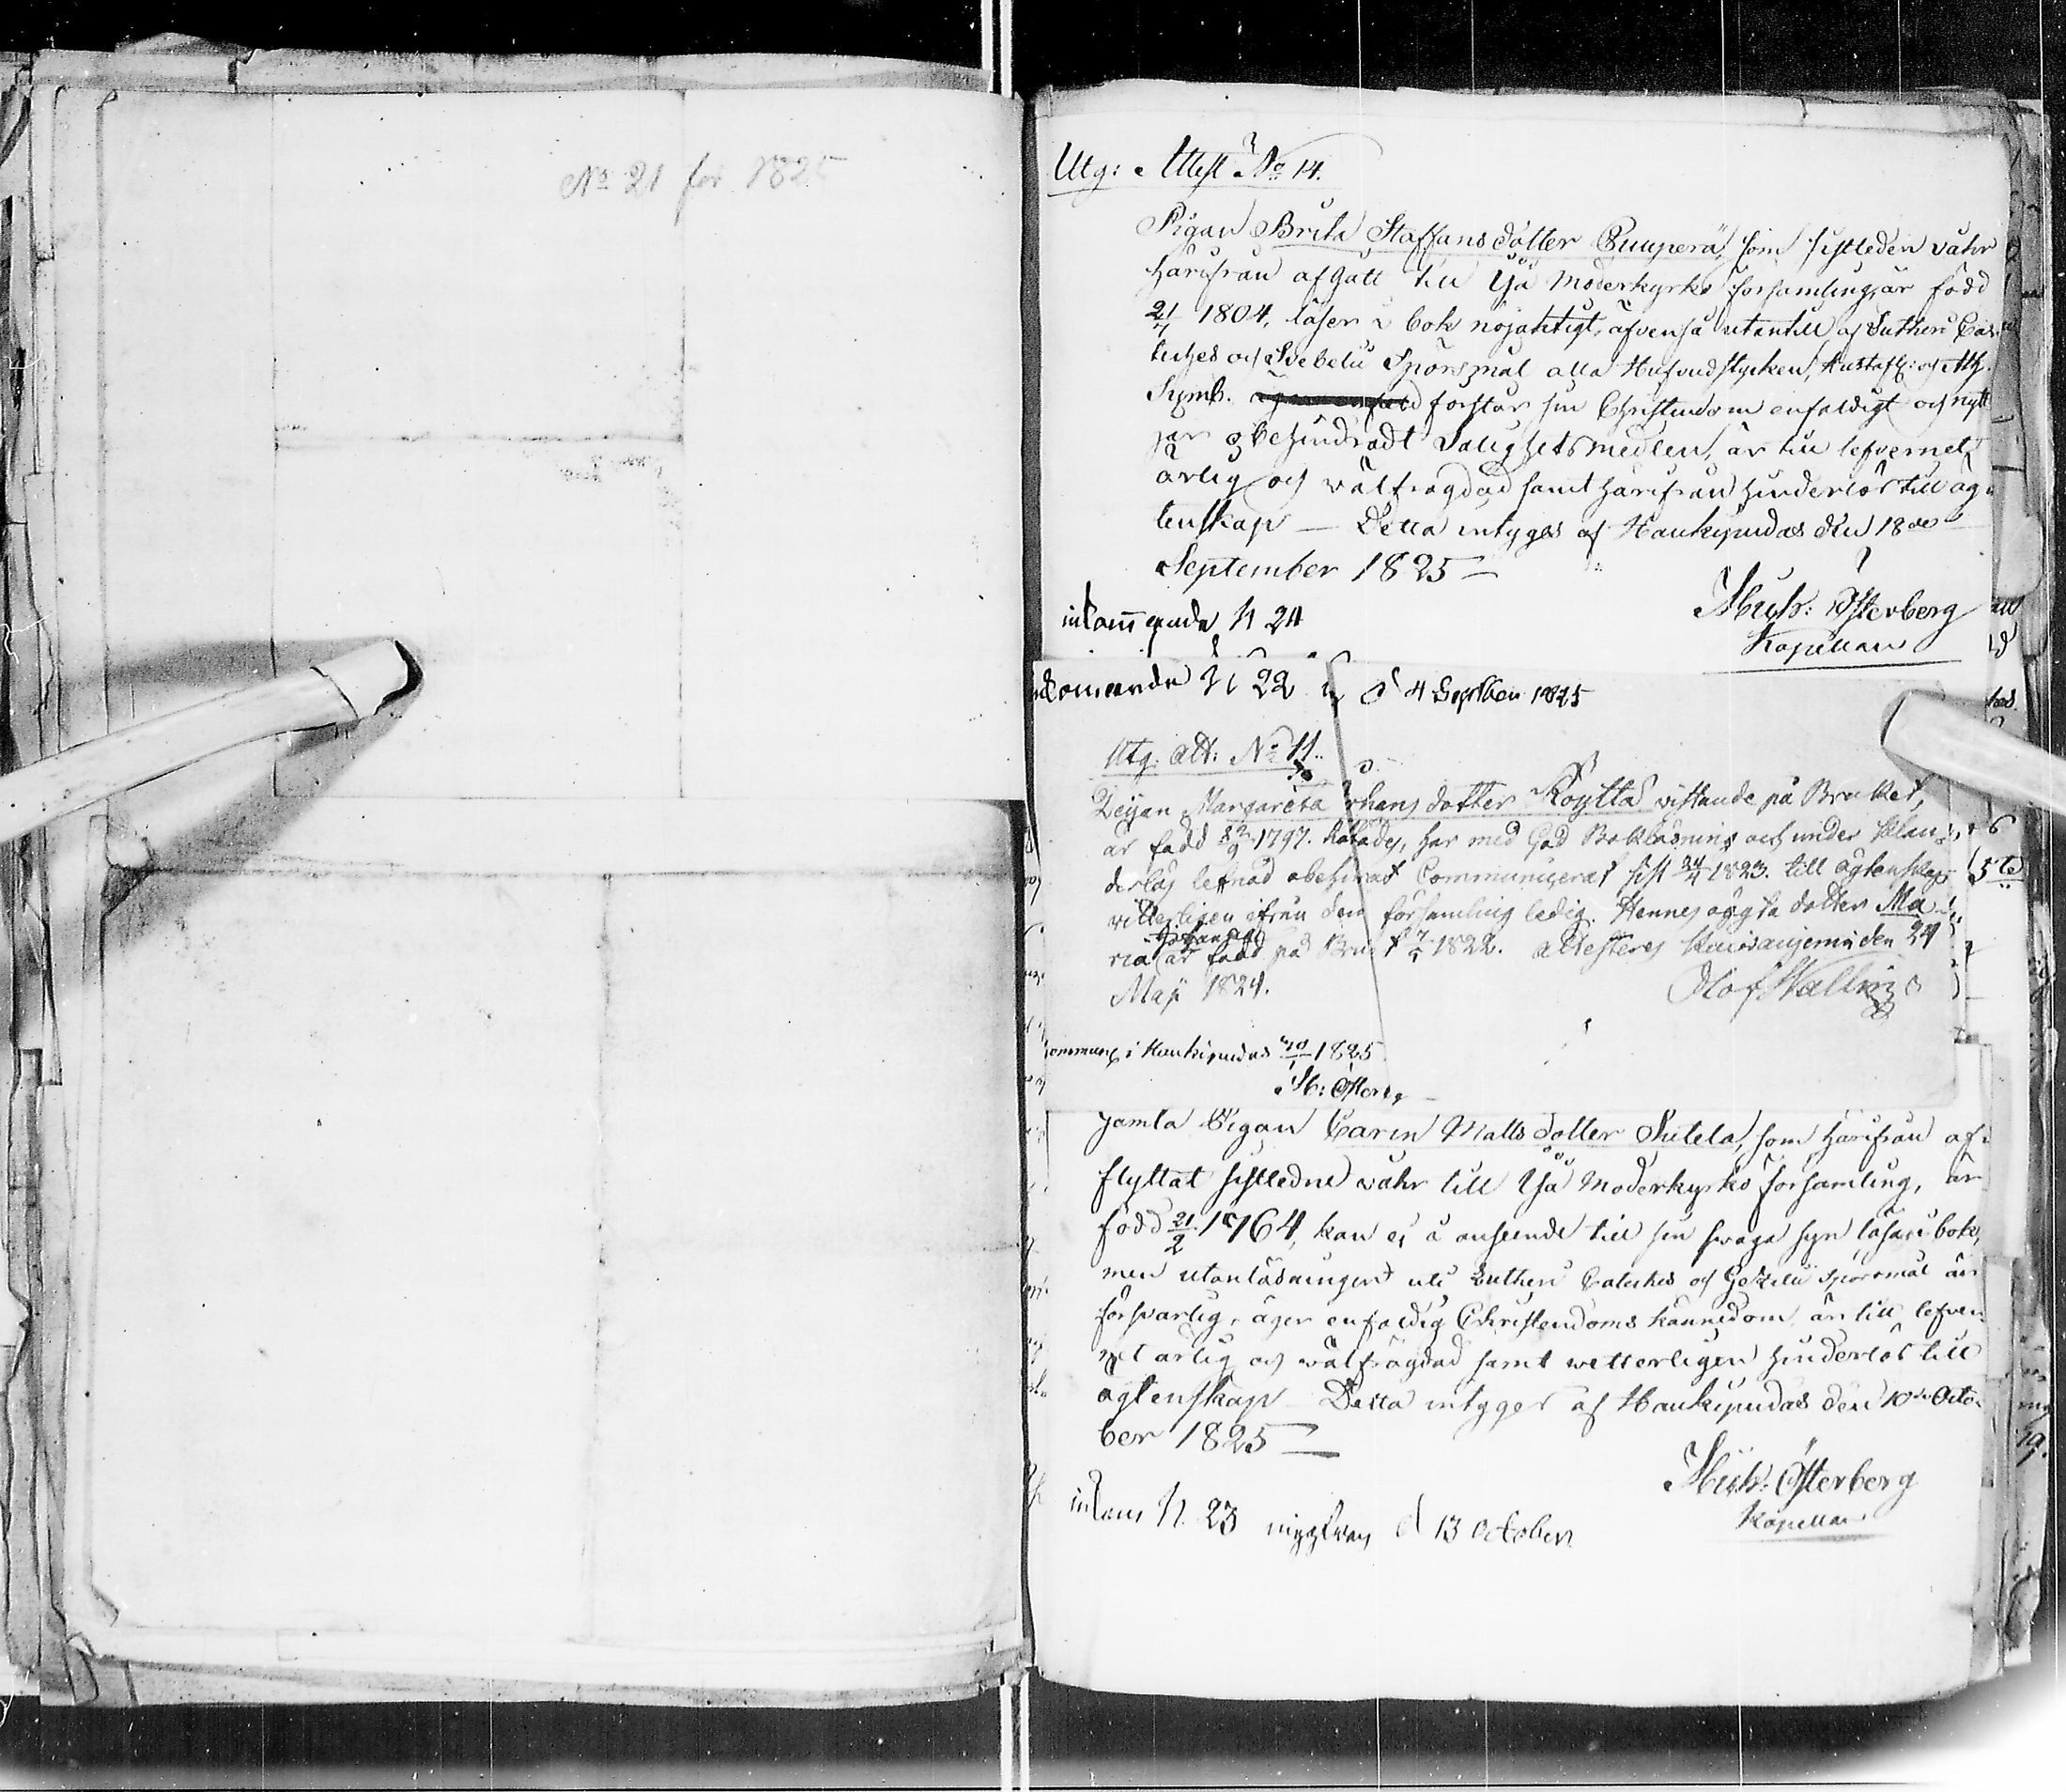 No 21 för 1825
Utg: Attest No 14.
Pigan Brita Staffansdotter Puuperä, som sistleden våhr
härifrån afgått till Ijå Moderkyrko församling, är född
21/7 1804, läser i bok nöjaktigt, äfvenså utantill af Lutheri Cate-
ches och Svebelii Spörsmål alla Hufvudstycken, Hustafl: och Ath.
Symb. förstår sin Christendom enfaldigt och nytt
jar obehindradt Salighetsmedlen, är till lefvernet
ärlig och välfrägdad samt härifrån hinderlös till äg
tenskap — Detta intygas af Haukipudas den 18de
September 1825 —
Mich: Österberg
Kapellan
inkommande N 24
inkommande N 22 d 4 September 1825
Utg: att: No 11.
Pigan Margareta Johans dotter Koytta vistande på Bruket,
är född 1797. har med God Bokläsning och under klan-
derlös lefnad obehindrat Communicerat sist 24/4 1823. till ägtenskap
vitterligen ifrån den församling ledig. Hennes oägta dotter Ma-
ria är född på Bruket 1822. attesteras den 24
Maji 1824.
Olof Wallin
Haukipudas 1825
M: Österbg
jemla Pigan Carin Matts dotter Sutela, som härifrån af-
flyttat sistledne våhr till Ijå Moderkyrko församling, är
född 21/2 1764, kan ej i anseende till sin svaga syn läsa i bok,
men utanläsningen uti Lutheri Cateches och Gezelii spörsmål är
försvarlig, äger enfaldig Christendoms kännedom, är till lefver-
net ärlig och välfrägdad samt vetterligen hinderlös till
ägtenskap — Detta intyges af Haukipudas den 10de Octo-
ber 1825 —
Mich: Österberg
Kapellan
inkom N. 23 d 13 October